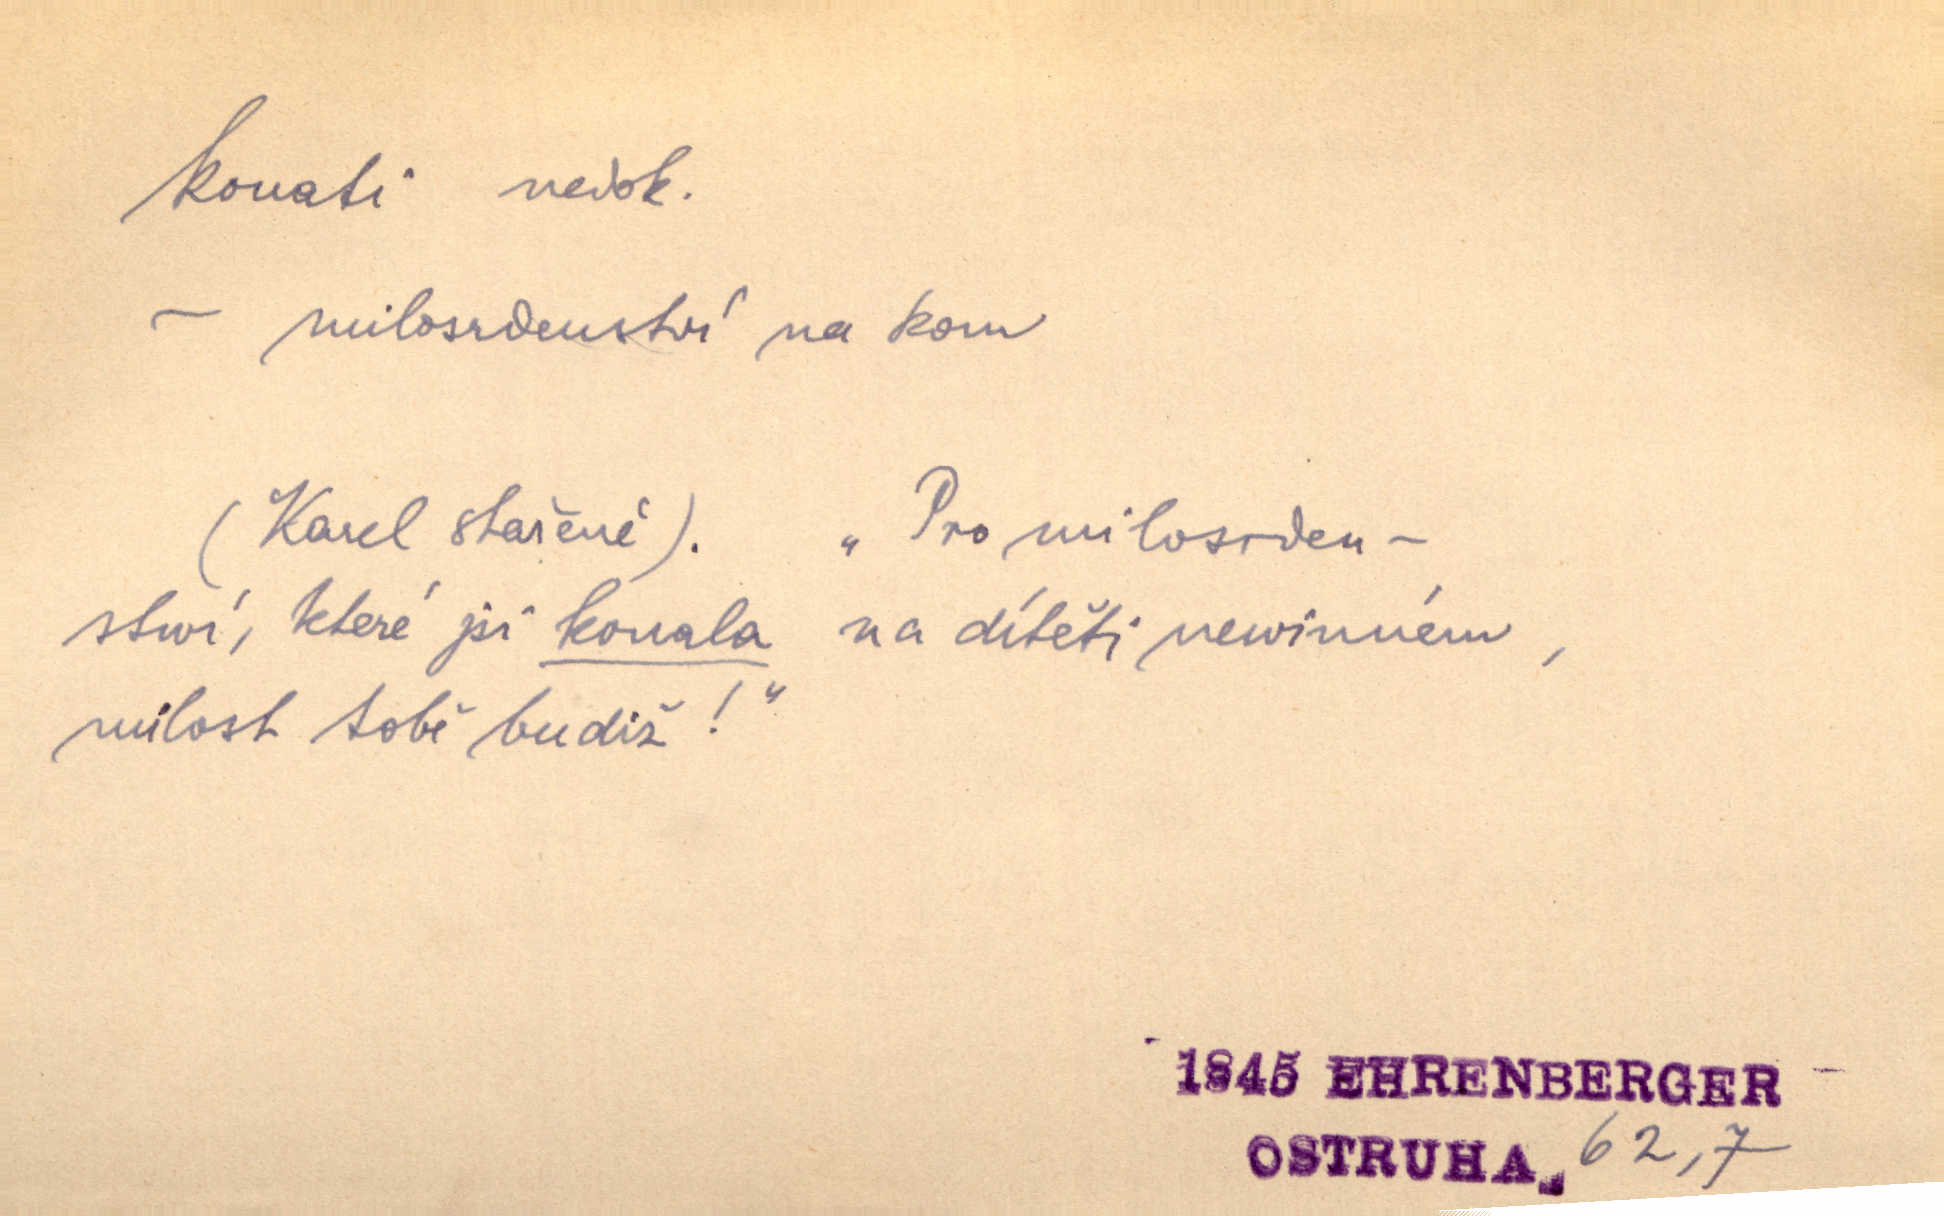 konati nedok.
~ milosrdenství na kom
(Karel stařeně). „Pro milosrden-
stwí, které jsi konala na dítěti newinném,
milost tobě budiž!“
1845 EHRENBERGER
OSTRUHA, 62,7